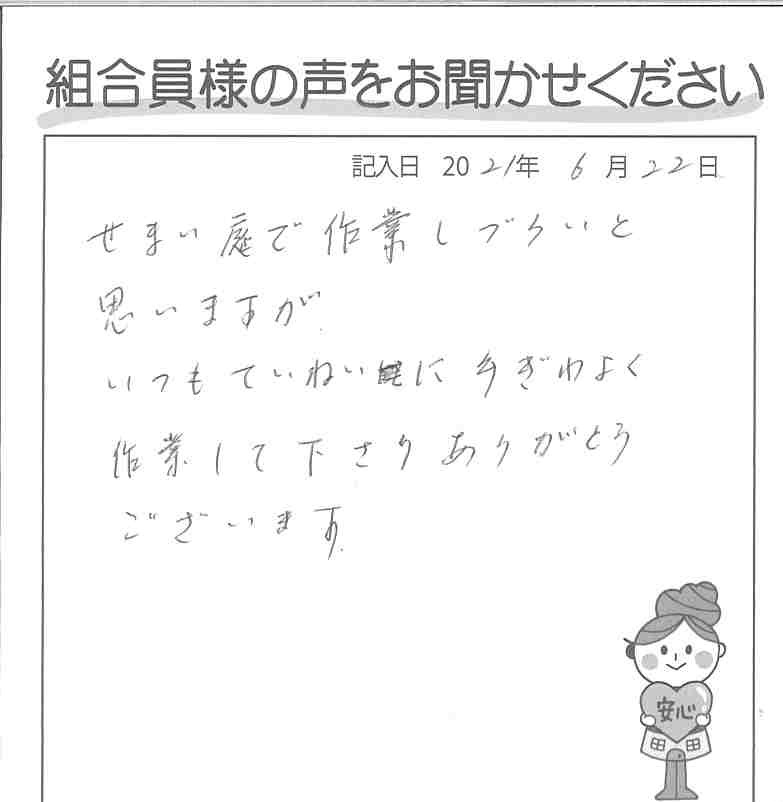 組合員様の声をお聞かせください
記入日 2021年 6月22日
せまい庭で作業しづらいと
思いますが、
いつもていねいに手ぎわよく
作業して下さりありがとう
ございます。
安心